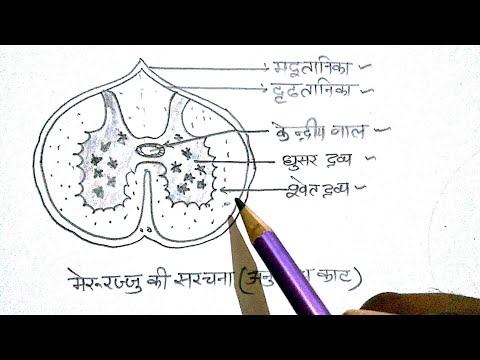 मृदुतानिका
दृढतानिका
केन्द्रीय नाल
धुसर द्रव्य
श्वेत द्रव्य
मेरूरज्जु की सरचना ( काट)